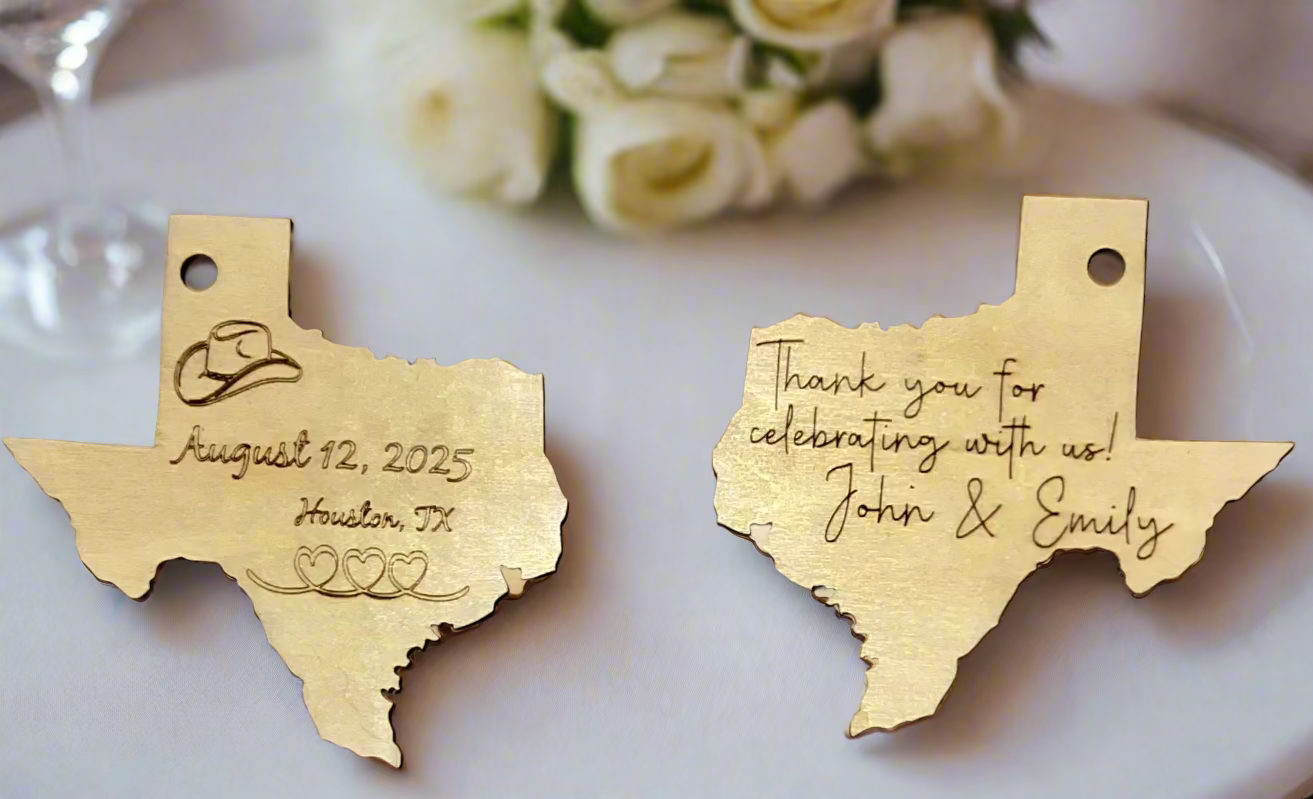 August 12, 2025
Houston, TX
Thank you for
celebrating with us!
John & Emily